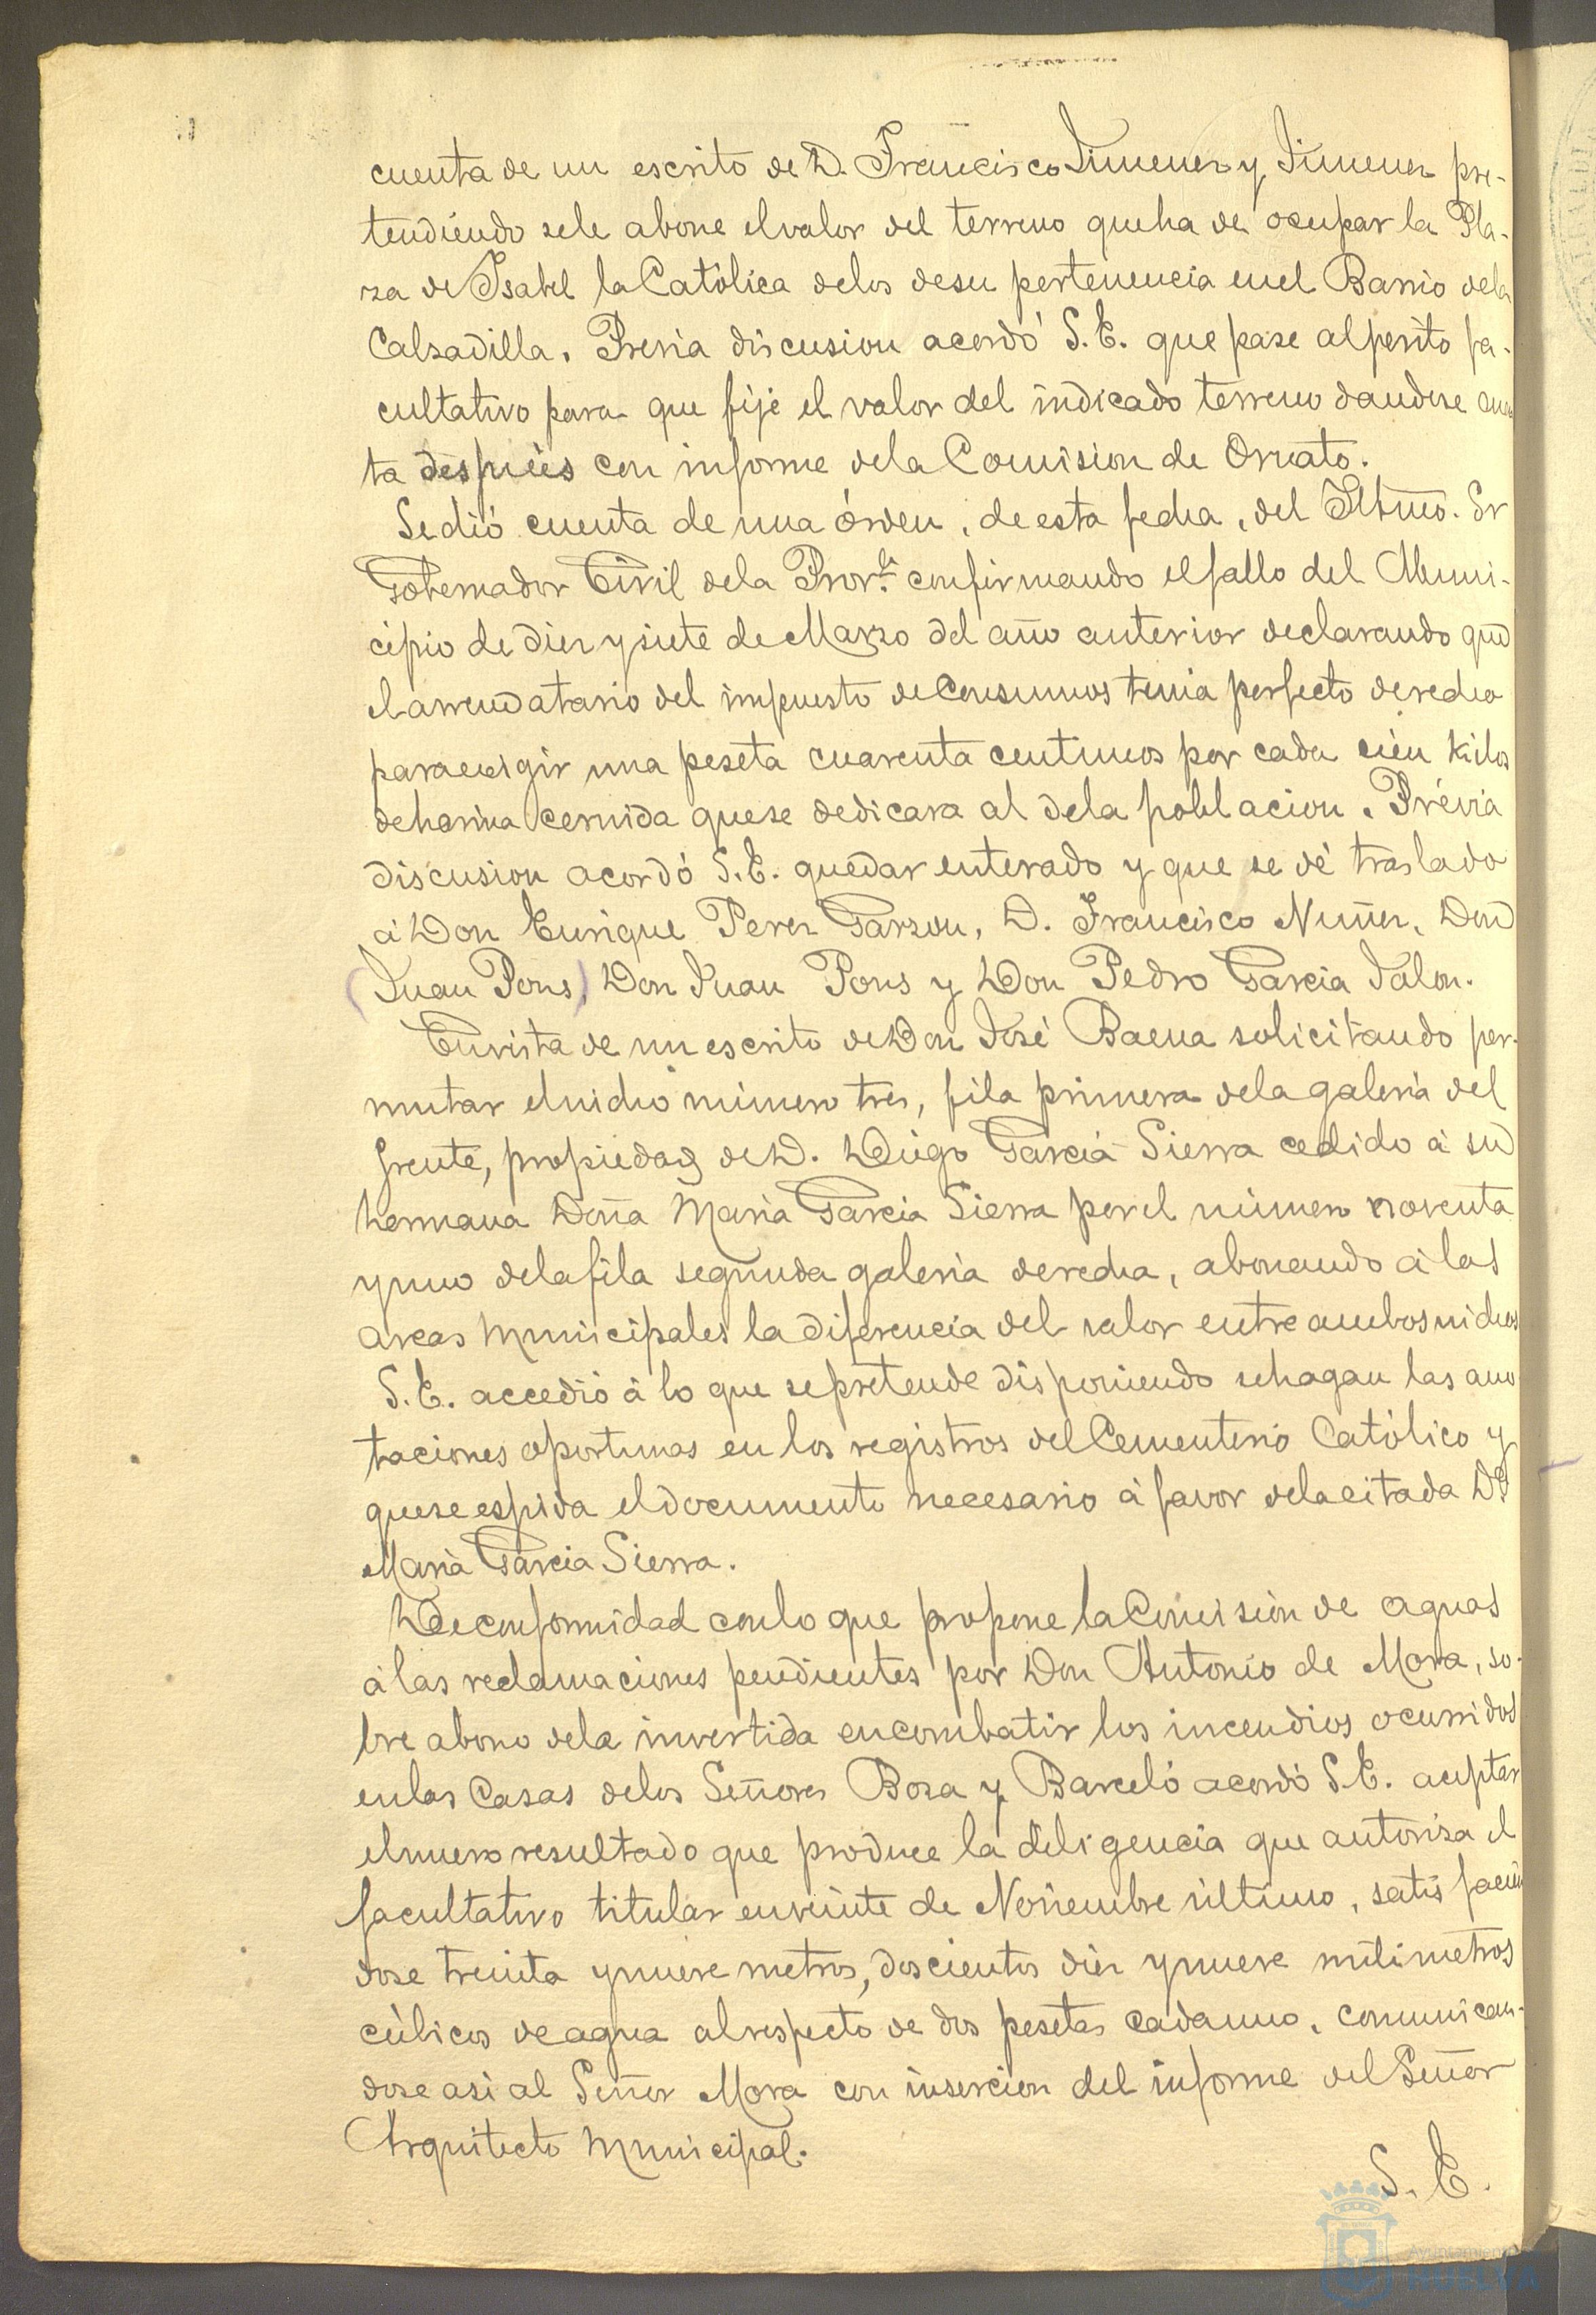 cuenta de un escrito de D. Francisco Jimenez y Jimenez pre-
tendiendo sele abone el valor del terreno que ha de ocupar la Pla-
za de Isabel la Católica delos desu pertenencia enel Barrio dela
Calzadilla. Prévia discusion acordó S.E. que pase al perito fa-
cultativo para que fije el valor del indicado terreno dandose cuen
ta despues con informe dela Comision de Ornato.
Sedió cuenta de una órden, de esta fecha, del Iltmo. Sr
Gobernador Civil dela Prov.ª confirmando el fallo del Muni-
cipio de diez y siete de Marzo del año anterior declarando que
el arrendatario del impuesto de Consumos tenia perfecto derecho
para exigir una peseta cuarenta centimos por cada cien kilos
de harina cernida quese dedicara al dela poblacion. Prévia
discusion acordó S.E. quedar enterado y que se dé traslado
á Don Enrique Perez Garzon, D. Francisco Nuñez, Don
(Juan Pons) Don Juan Pons y Don Pedro Garcia Jalon.
En vista de un escrito de Don José Baena solicitando per-
mutar el nicho número tres, fila primera dela galeria del
frente, propiedad de D. Diego Garcia Sierra cedido á su
hermana Doña Maria Garcia Sierra por el número noventa
y uno dela fila segunda galeria derecha, abonando á las
arcas Municipales la diferencia del valor entre ambos nichos
S.E. accedió á lo que se pretende disponiendo sehagan las ano
taciones oportunas en los registros del Cementerio Católico y
quese espida el documento necesario á favor dela citada D.ª
Maria Garcia Sierra.
De conformidad con lo que propone la Comision de aguas
á las reclamaciones pendientes por Don Antonio de Mora, so-
bre abono dela invertida en combatir los incendios ocurridos
en las Casas delos Señores Boza y Barceló acordó S.E. aceptar
el nuevo resultado que produce la diligencia que autoriza el
facultativo titular en veinte de Noviembre último, satisfacién
dose treinta y nueve metros, doscientos diez y nueve milimetros
cúbicos de agua al respecto de dos pesetas cada uno, comunican-
dose asi al Señor Mora con insercion del informe del Señor
Arquitecto Municipal.
S. E.
Ayuntamiento
HUELVA